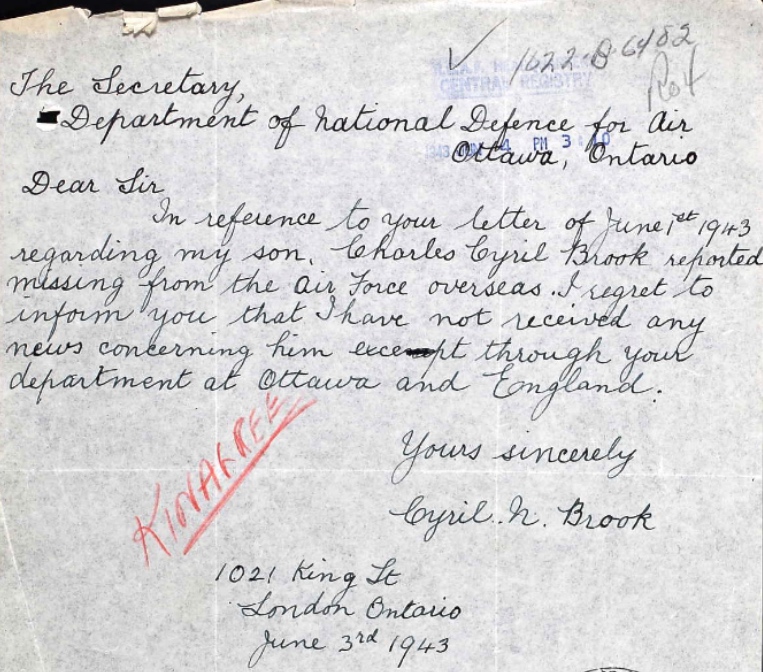 1622-B-6482
R64
R.C.A.F. HEADQUARTERS
CENTRAL REGISTRY
The Secretary,
Department of National Defence for Air
1943 JUN 4 PM 3:10
Ottawa, Ontario
Dear Sir
In reference to your letter of June 1st 1943
regarding my son, Charles Cyril Brook reported
missing from the Air Force overseas. I regret to
inform you that I have not received any
news concerning him except through your
department at Ottawa and England.
KINAKREE
Yours sincerely
Cyril. N. Brook
1021 King St
London Ontario
June 3rd 1943